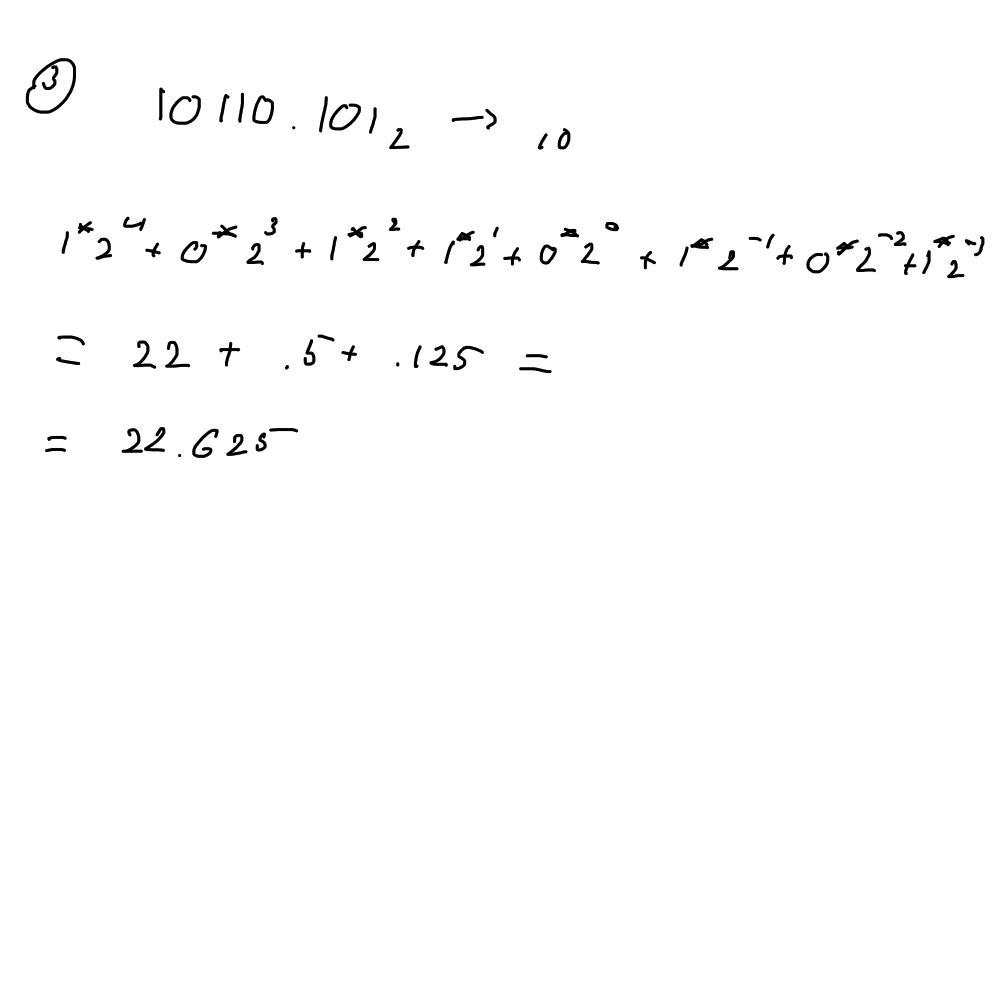 ③ 10110.101₂ → ₁₀
1*2⁴ + 0*2³ + 1*2² + 1*2¹ + 0*2⁰ + 1*2⁻¹ + 0*2⁻² + 1*2⁻³
= 22 + .5 + .125 =
= 22.625